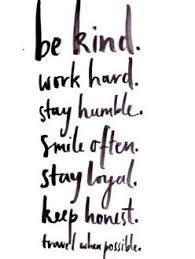 be kind.
work hard.
stay humble.
smile often.
stay loyal.
keep honest.
travel when possible.